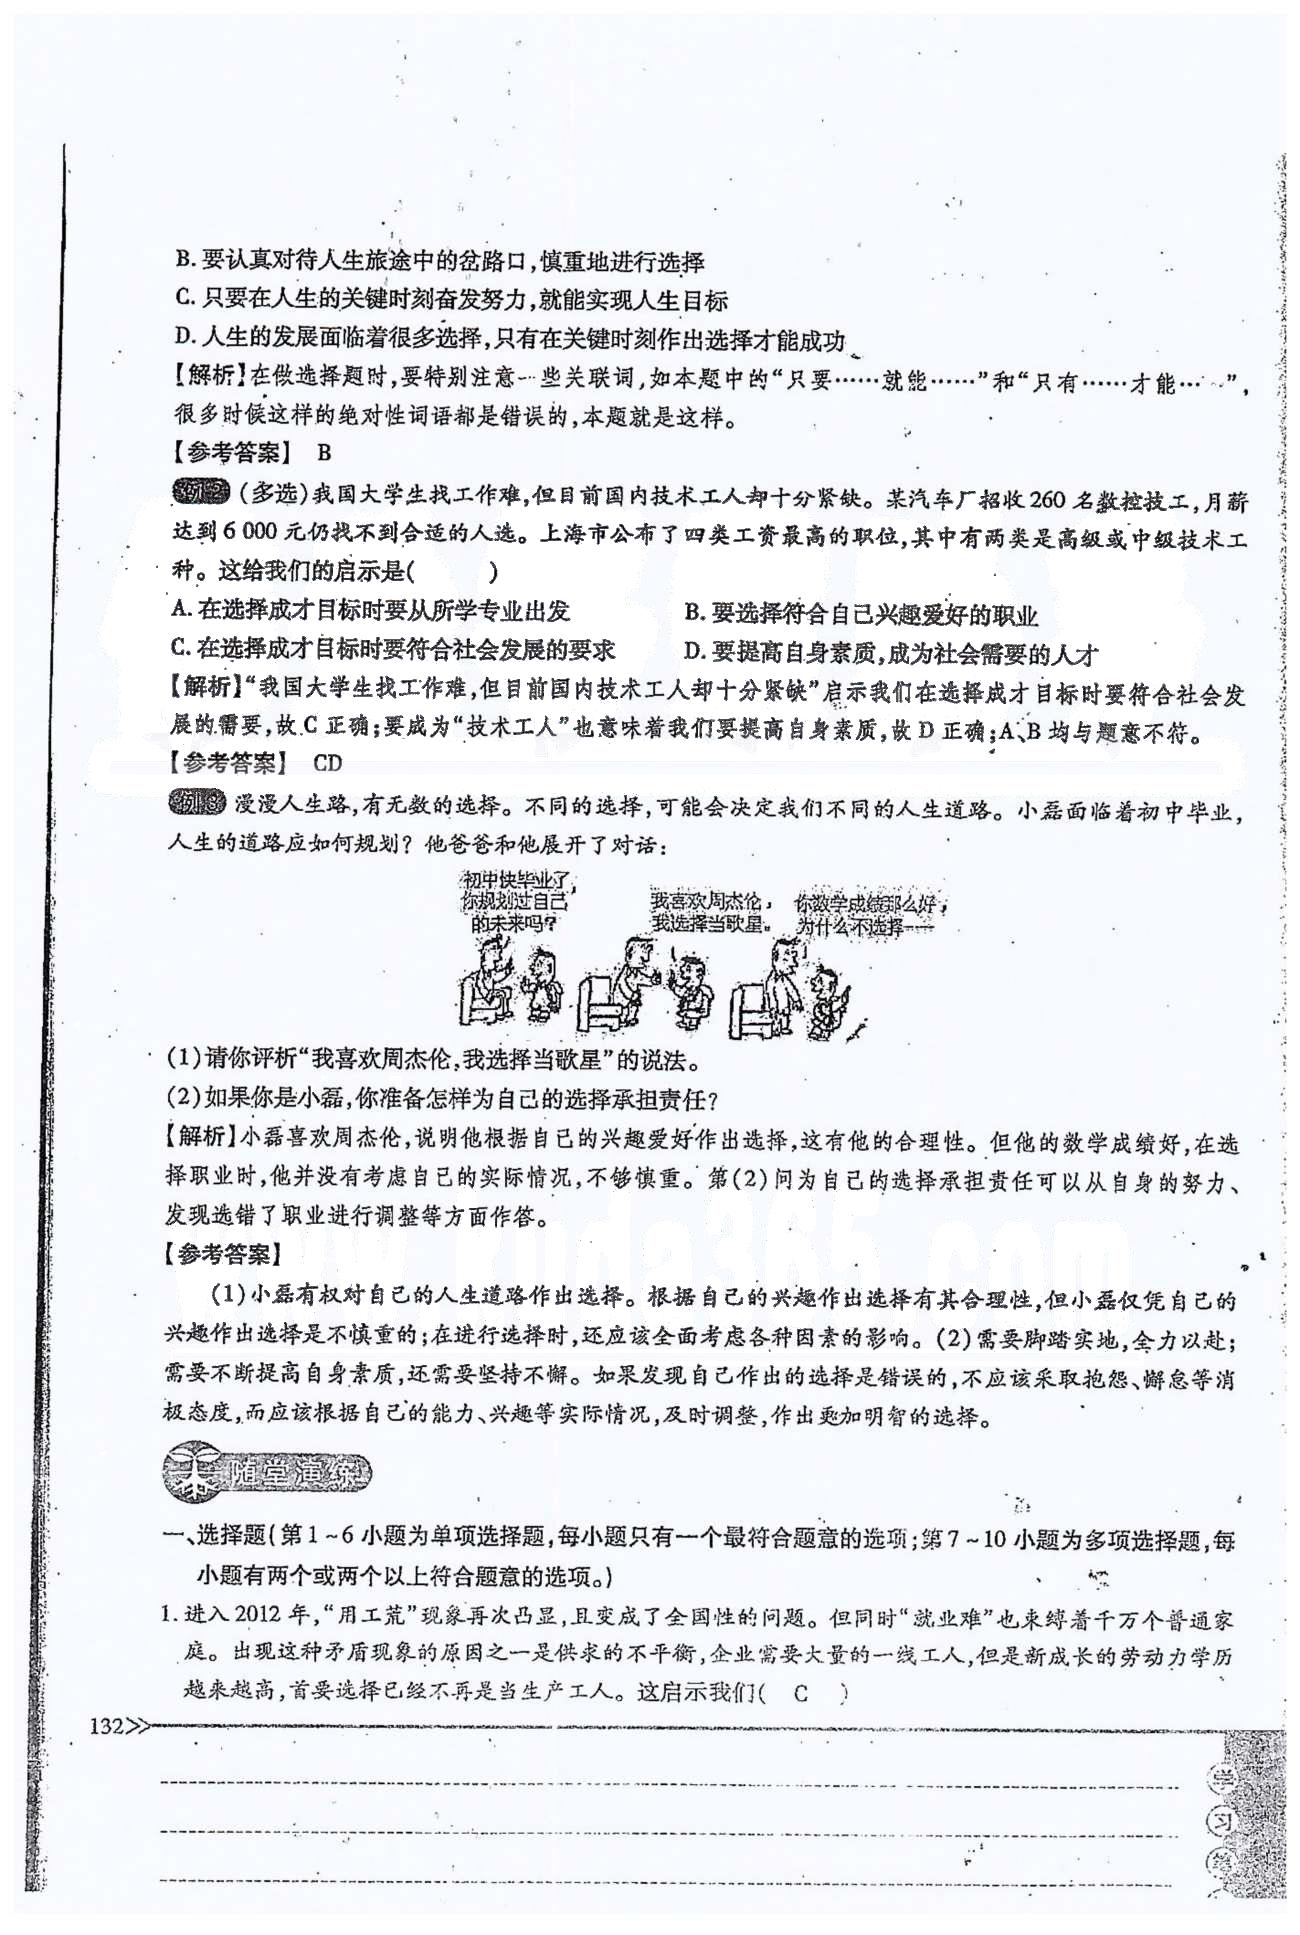 B. 要认真对待人生旅途中的岔路口,慎重地进行选择
C. 只要在人生的关键时刻奋发努力,就能实现人生目标
D. 人生的发展面临着很多选择,只有在关键时刻作出选择才能成功
【解析】在做选择题时,要特别注意一些关联词,如本题中的“只要……就能……”和“只有……才能……”,
很多时候这样的绝对性词语都是错误的,本题就是这样。
【参考答案】 B
例2 (多选)我国大学生找工作难,但目前国内技术工人却十分紧缺。某汽车厂招收260名数控技工,月薪
达到6 000元仍找不到合适的人选。上海市公布了四类工资最高的职位,其中有两类是高级或中级技术工
种。这给我们的启示是( )
A. 在选择成才目标时要从所学专业出发 B. 要选择符合自己兴趣爱好的职业
C. 在选择成才目标时要符合社会发展的要求 D. 要提高自身素质,成为社会需要的人才
【解析】“我国大学生找工作难,但目前国内技术工人却十分紧缺”启示我们在选择成才目标时要符合社会发
展的需要,故C正确;要成为“技术工人”也意味着我们要提高自身素质,故D正确;A、B均与题意不符。
【参考答案】 CD
例3 漫漫人生路,有无数的选择。不同的选择,可能会决定我们不同的人生道路。小磊面临着初中毕业,
人生的道路应如何规划?他爸爸和他展开了对话:
初中快毕业了,
你规划过自己
的未来吗?
我喜欢周杰伦,
我选择当歌星。
你数学成绩那么好,
为什么不选择……
(1)请你评析“我喜欢周杰伦,我选择当歌星”的说法。
(2)如果你是小磊,你准备怎样为自己的选择承担责任?
【解析】小磊喜欢周杰伦,说明他根据自己的兴趣爱好作出选择,这有他的合理性。但他的数学成绩好,在选
择职业时,他并没有考虑自己的实际情况,不够慎重。第(2)问为自己的选择承担责任可以从自身的努力、
发现选错了职业进行调整等方面作答。
【参考答案】
(1)小磊有权对自己的人生道路作出选择。根据自己的兴趣作出选择有其合理性,但小磊仅凭自己的
兴趣作出选择是不慎重的;在进行选择时,还应该全面考虑各种因素的影响。(2)需要脚踏实地,全力以赴;
需要不断提高自身素质,还需要坚持不懈。如果发现自己作出的选择是错误的,不应该采取抱怨、懈怠等消
极态度,而应该根据自己的能力、兴趣等实际情况,及时调整,作出更加明智的选择。
随堂演练
一、选择题(第1~6小题为单项选择题,每小题只有一个最符合题意的选项;第7~10小题为多项选择题,每
小题有两个或两个以上符合题意的选项。)
1. 进入2012年,“用工荒”现象再次凸显,且变成了全国性的问题。但同时“就业难”也束缚着千万个普通家
庭。出现这种矛盾现象的原因之一是供求的不平衡,企业需要大量的一线工人,但是新成长的劳动力学历
越来越高,首要选择已经不再是当生产工人。这启示我们( C )
132
学
习
笔